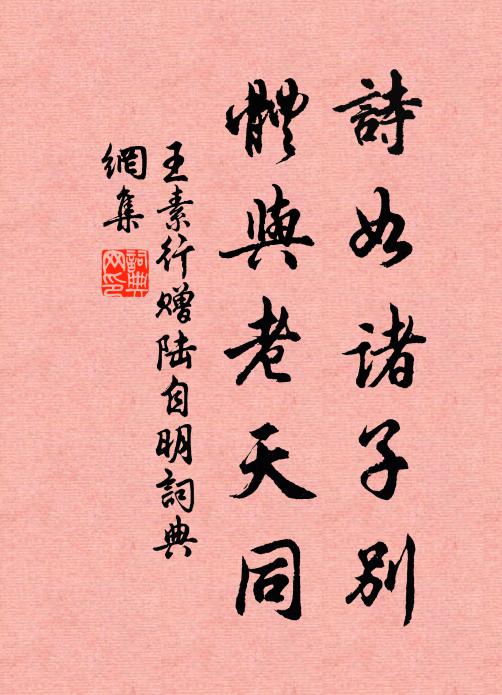 詩如諸子別
體與老天同
王素行贈陸自明詞典
網集
詞典
网印